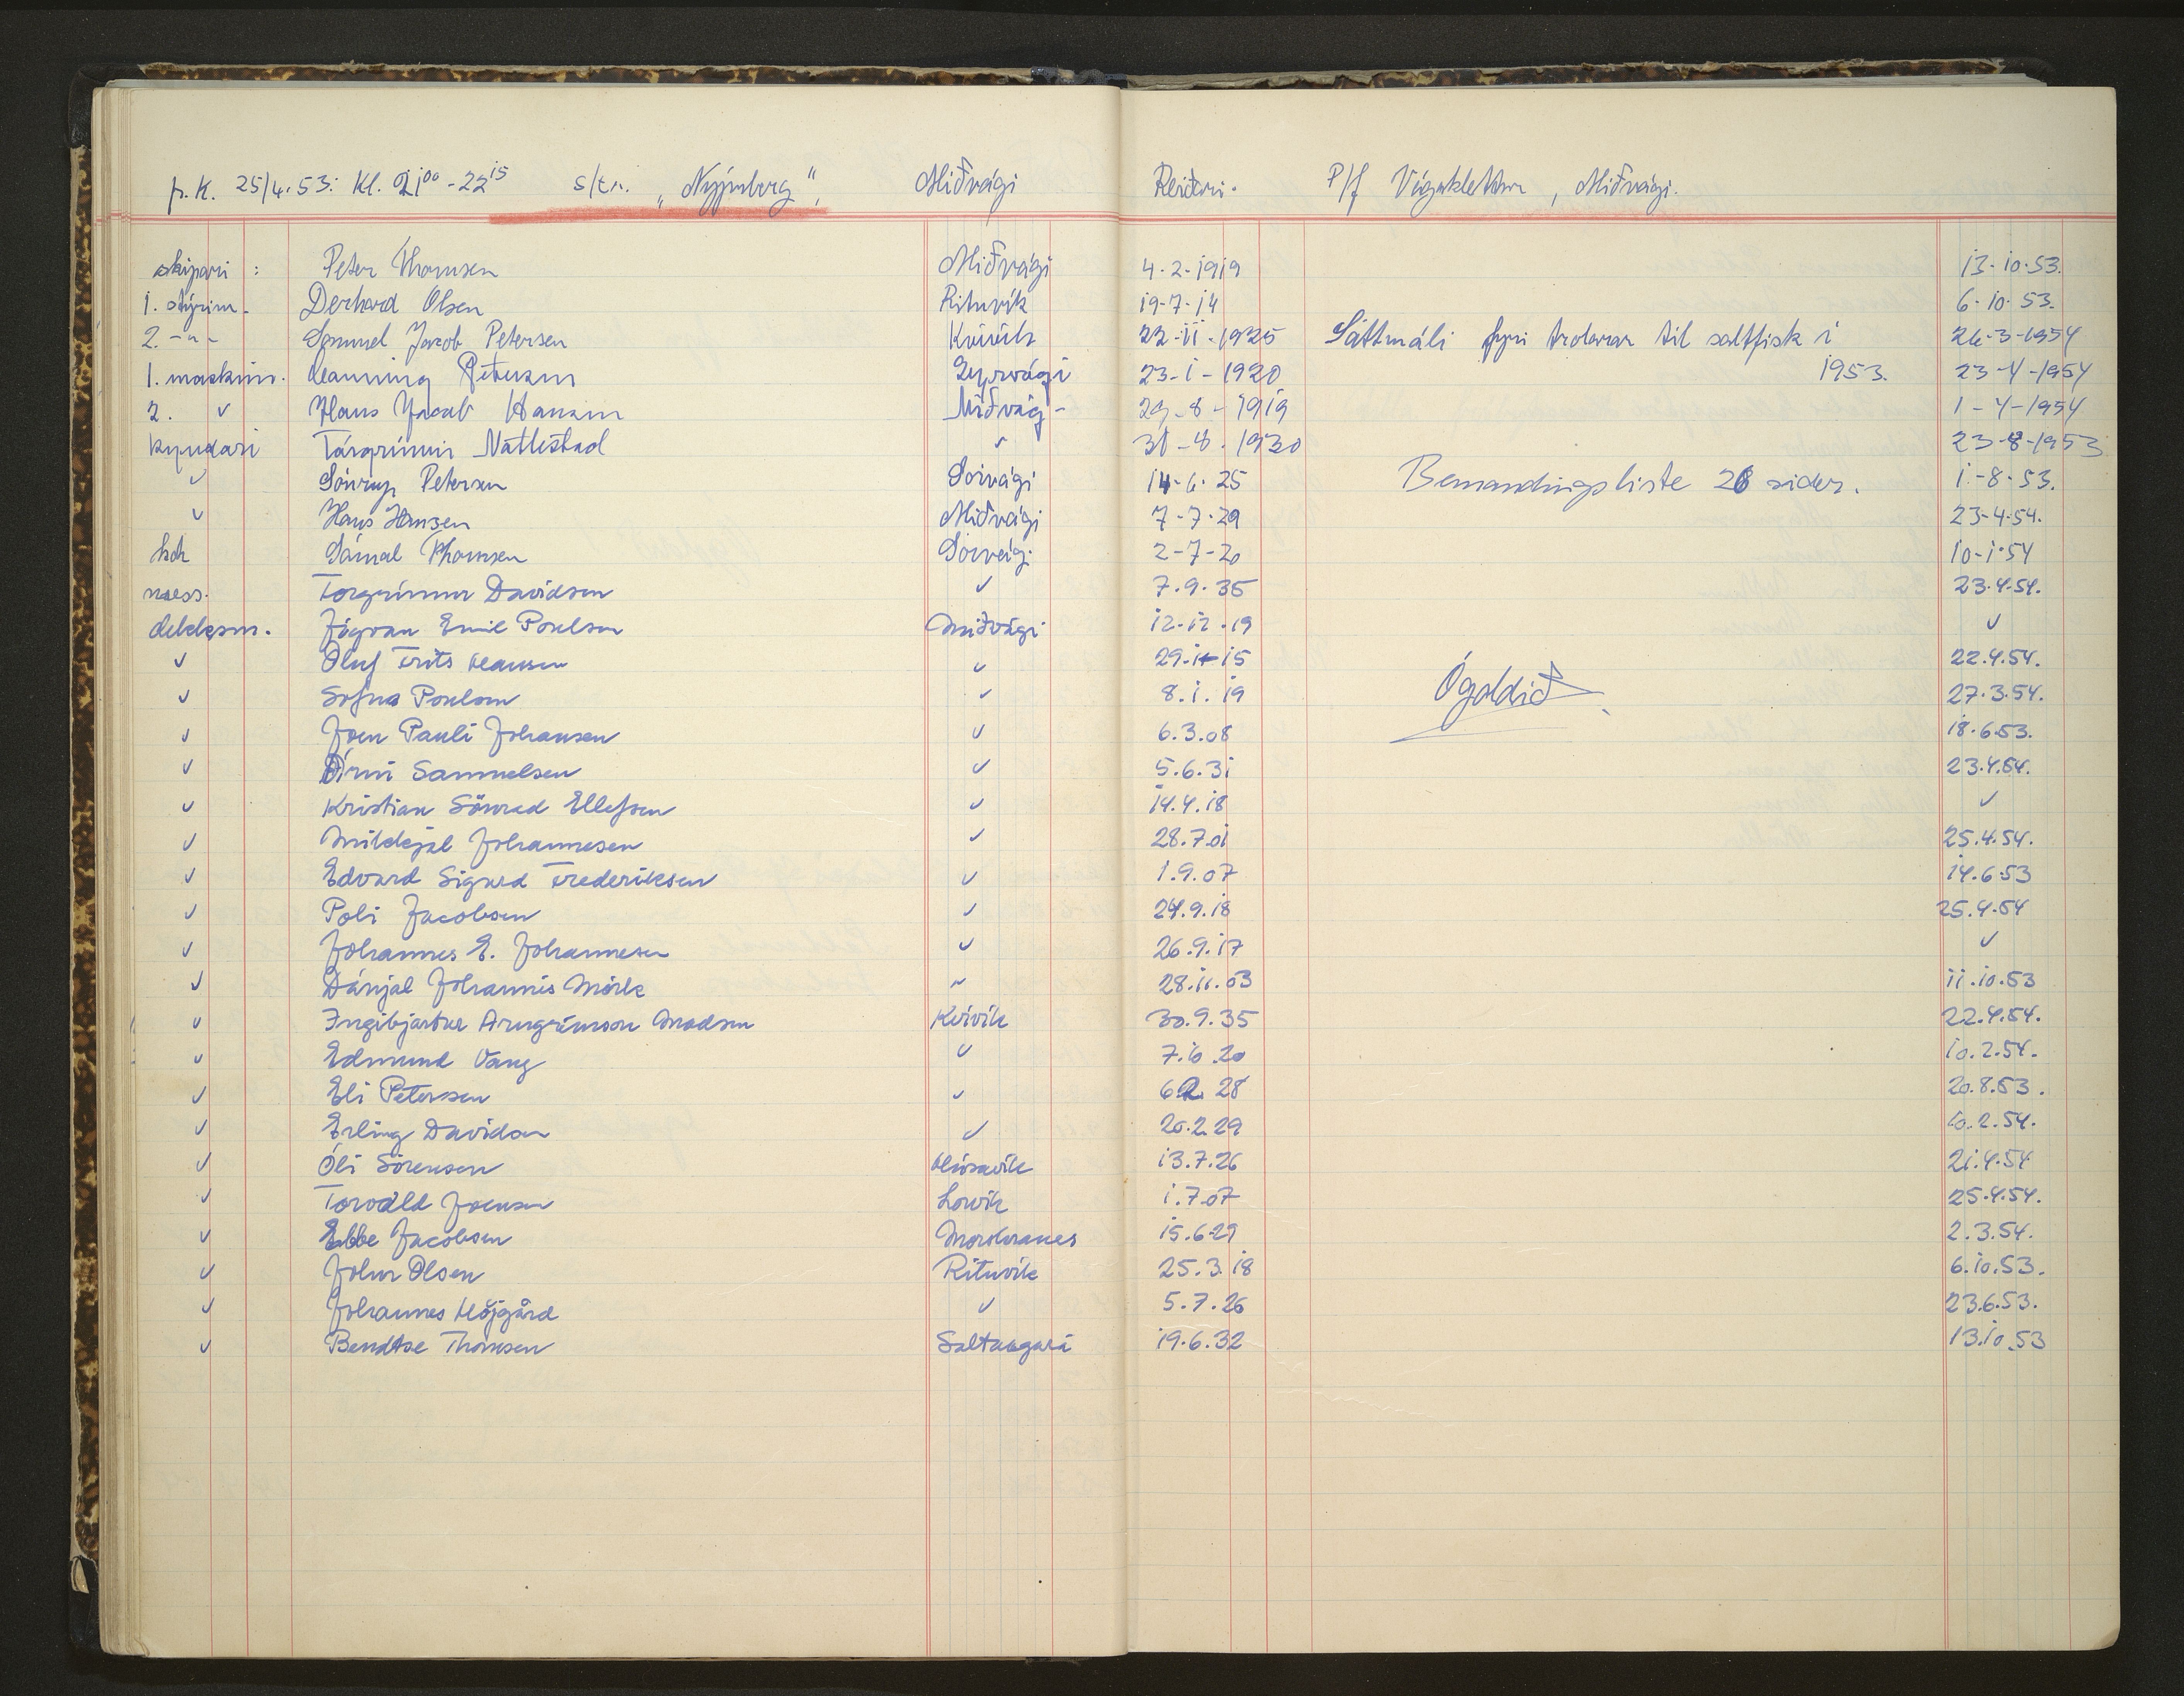 p.K. 25/4.53. Kl. 21⁰⁰-22¹⁵ s/tr. „Nýpuberg“, Miðvági Reiðari. P/f Vágaklettur, Miðvági.
skipari : Peter Thomsen Miðvági 4.2.1919 13.10.53.
1. stýrim. Derhard Olsen Rituvík 19-7-14 6.10.53.
2. -"- Samuel Jacob Petersen Kvívík 22-11-1925 Sáttmáli fyri trolarar til saltfisk í 26-3-1954
1. maskinm. Hanning Petersen Sýrvági 23-1-1920 1953. 23-4-1954
2. ✓ Hans Jacob Hansen Miðvág- 29-8-1919 1-4-1954
kyndari Tórgrímur Nattestad ✓ 31-8-1930 23-8-1953
✓ Petersen Sørvági 14-6-25 Bemandingsliste 26 sider. 1-8-53.
✓ Hans Hansen Miðvági 7-7-29 23-4-54.
kok Sámal Thomsen Sørvági 2-7-20 10-1-54
mess. Torgrímur Davidsen ✓ 7.9.35 23.4.54.
dekksm. Jógvan Emil Poulsen Miðvági 12-12-19 ✓
✓ Oluf Frits Hansen ✓ 29.11.15 Ógoldið 22.4.54.
✓ Sofus Poulsen ✓ 8.1.19 27.3.54.
✓ Joen Pauli Johansen ✓ 6.3.08 18.6.53.
✓ Árni Samuelsen ✓ 5.6.31 23.4.54.
✓ Kristian Sörend Ellefsen ✓ 14.4.18 ✓
✓ Mikkjal Johannesen ✓ 28.7.01 25.4.54.
✓ Edvard Sigurd Frederiksen ✓ 1.9.07 14.6.53
✓ Poli Jacobsen ✓ 24.9.18 25.4.54
✓ Johannes E. Johannesen ✓ 26.9.17 ✓
✓ Dánjal Johannis Mörk ✓ 28.11.03 11.10.53
✓ Ingibjartur Arngrímson Madsen Kvívík 30.9.35 22.4.54.
✓ Edmund Vang ✓ 7.10.20 10.2.54.
✓ Eli Petersen ✓ 6.2.28 20.8.53.
✓ Erling Davidsen ✓ 20.2.29 10.2.54.
✓ Óli Sörensen Húsavík 13.7.26 21.4.54
✓ Torvald Joensen Lorvík 1.7.07 25.4.54.
✓ Ebbe Jacobsen Morskranes 15.6.29 2.3.54.
✓ John Olsen Rituvík 25.3.18 6.10.53.
✓ Johannes Höjgård ✓ 5.7.26 23.6.53.
✓ Bendtse Thomsen Saltangará 19.6.32 13.10.53